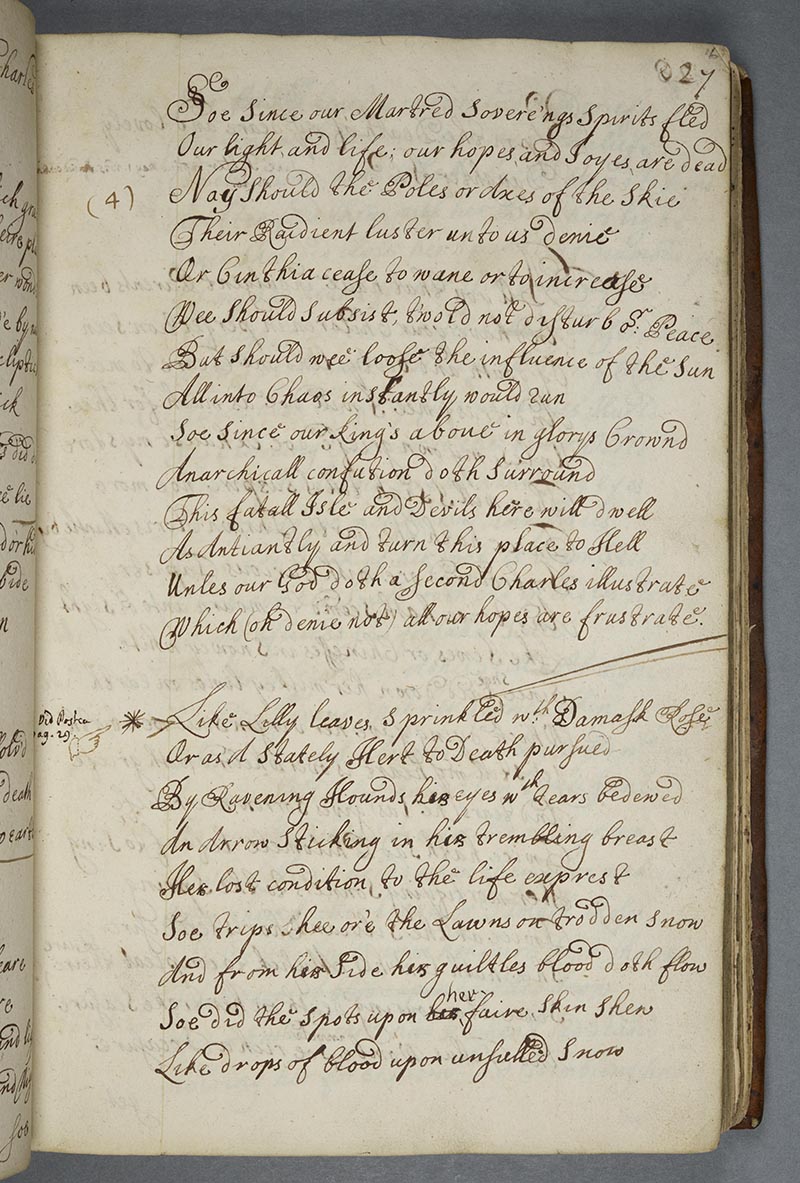 27
Soe Since our Martred Soverengs Spirits fled
Our light and life; our hopes and Joyes are dead
(4)
Nay Should the Poles or Axes of the Skie
Their Raidient luster unto us denie
Or Cinthia cease to wane or to increase
Wee Should Subsist, t'wold not disturb or Peace
But Should wee loose the influence of the Sun
All into Chaos instantly would run
Soe Since our King's above in glorys Crownd
Anarchicall confution doth Surround
This fatall Isle and Devils here will dwell
As Antiantly and turn this place to Hell
Unles our God doth a Second Charles illustrate
Which (oh denie not) all our hopes are frustrate.
Vid Postea
Pag. 29
* Like Lilly leaves Sprinkled wth Damask Roses
Or as A Stately Hert to Death pursued
By Ravening Hounds her eyes wth tears bedewed
An Arrow Sticking in her trembling breast
Her lost condition to the life exprest
Soe trips shee ore the Lawns on trodden Snow
And from her Side her guiltles blood doth flow
Soe did the Spots upon her faire Skin Shew
Like drops of blood upon unsulled Snow